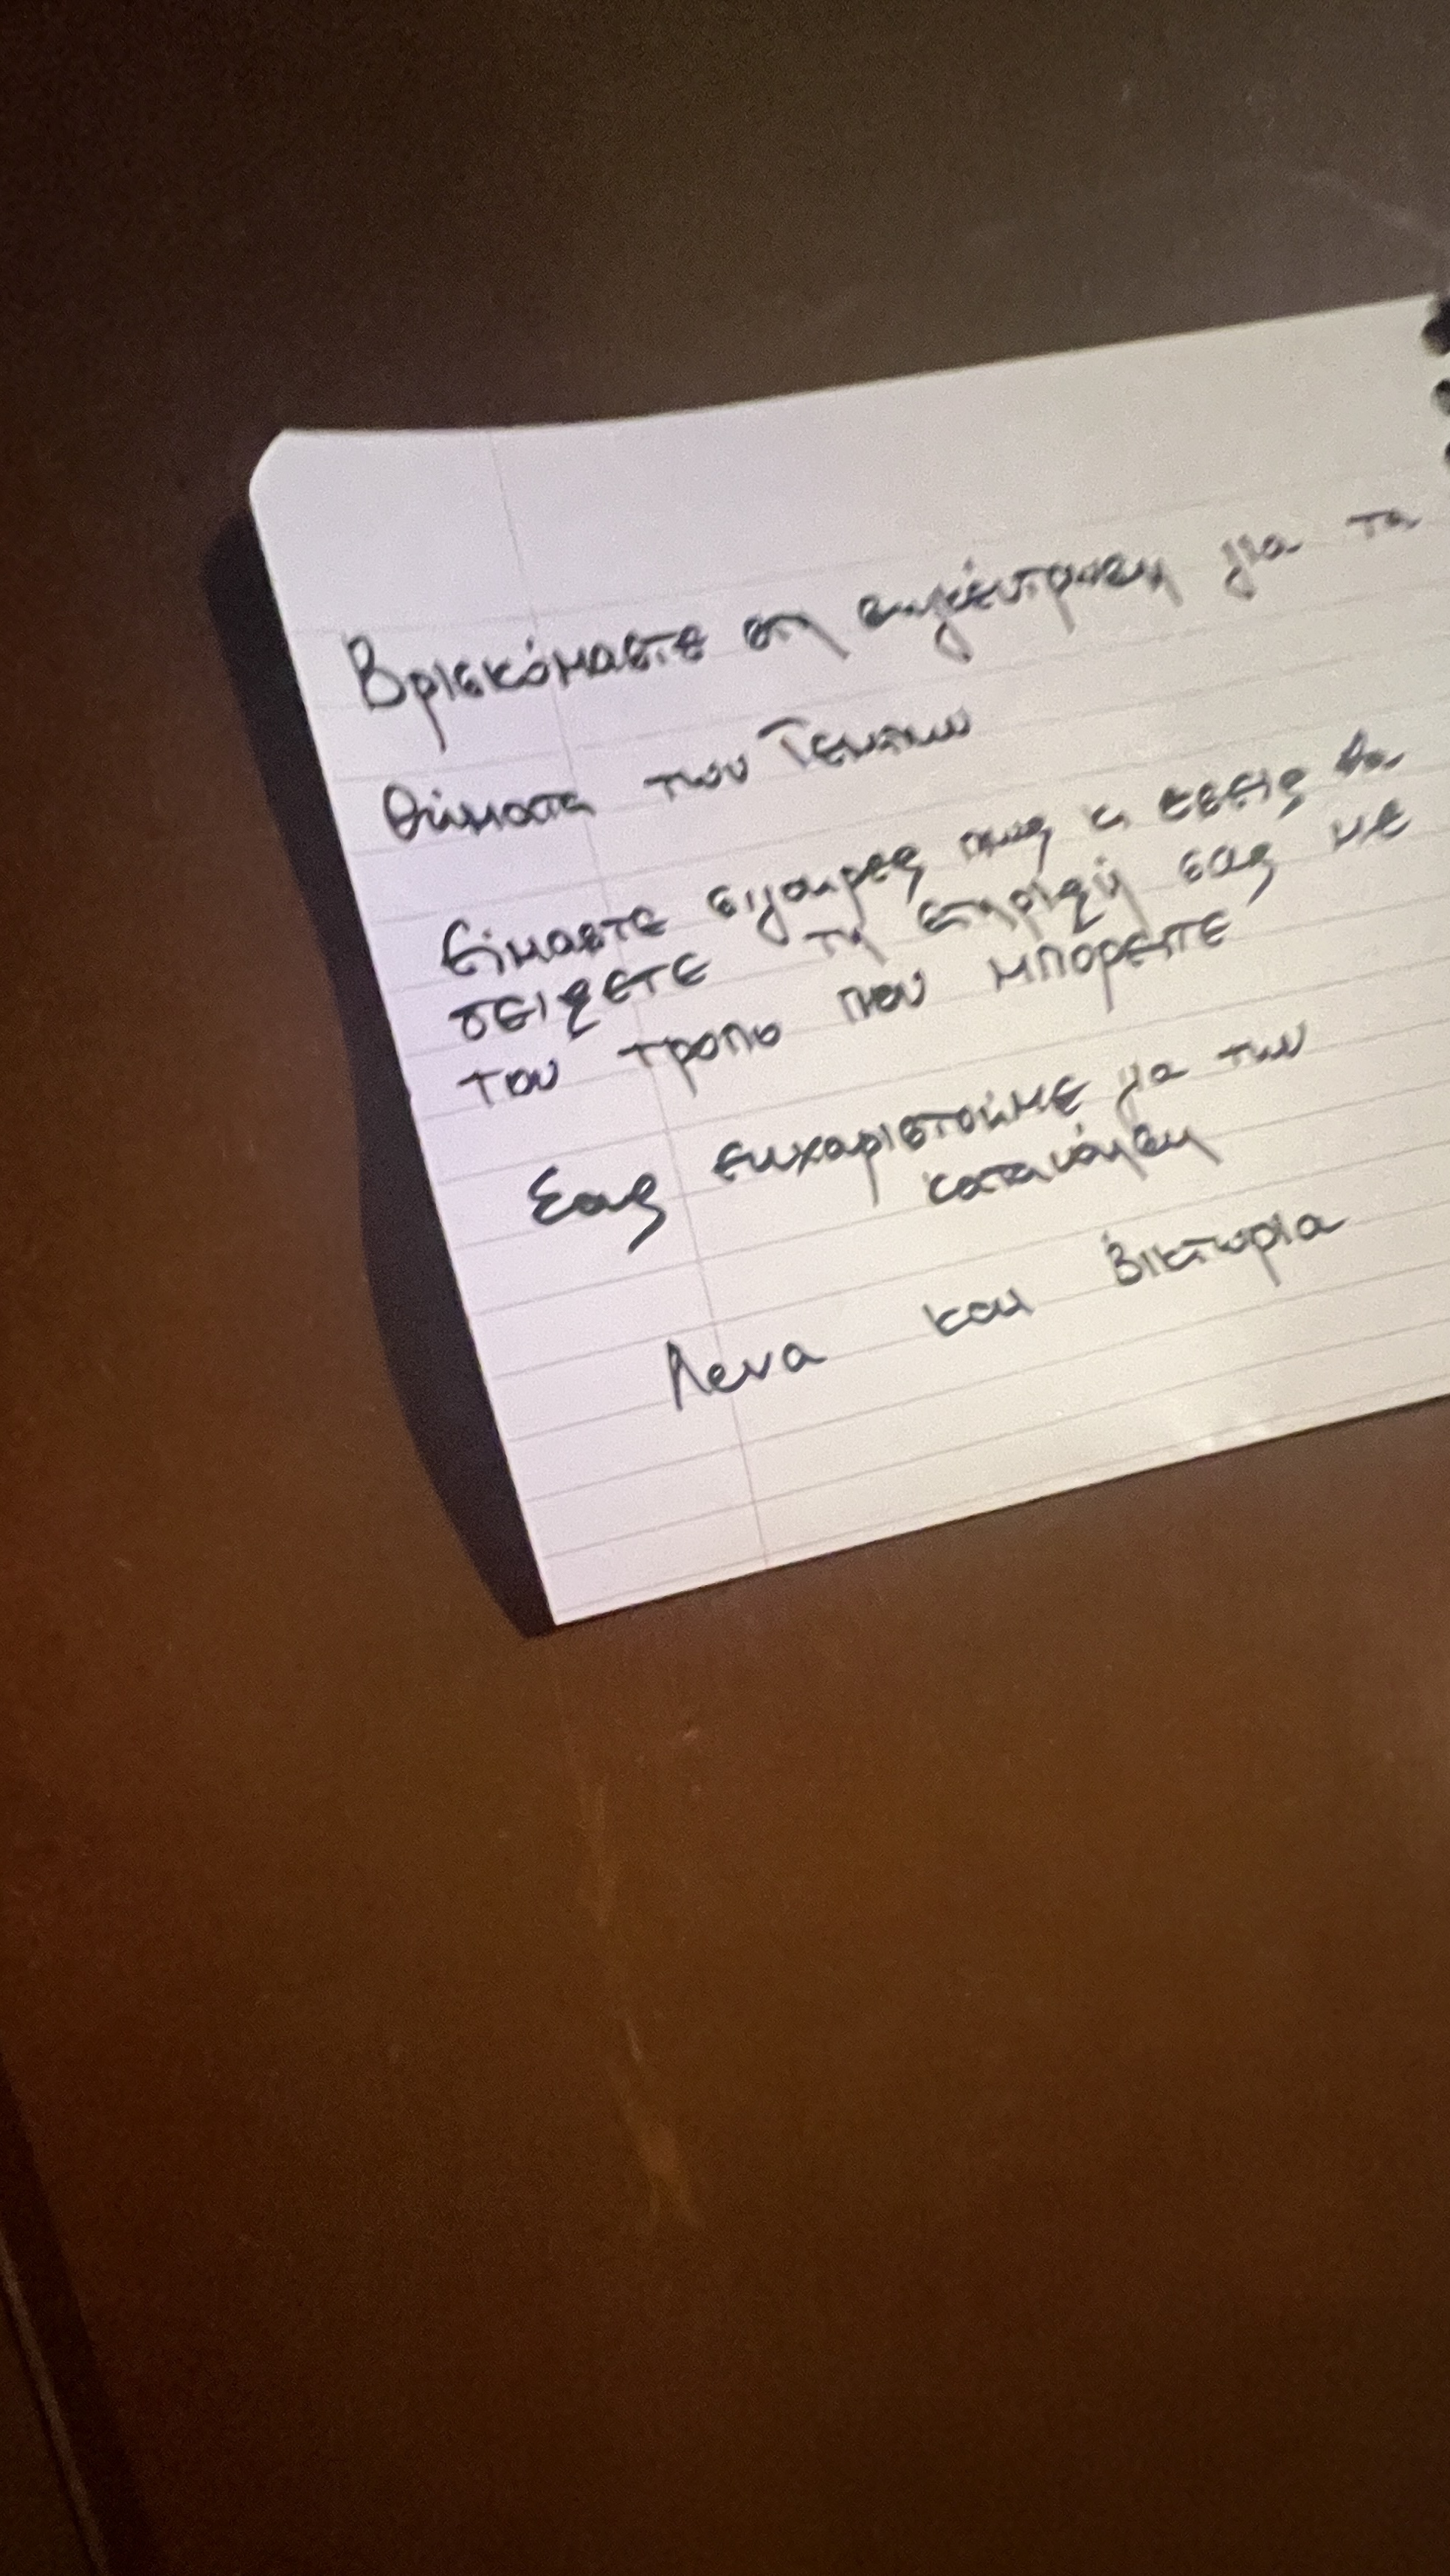 Βρισκόμαστε στη συγκέντρωση για τα
θύματα των Τεμπών
Είμαστε σίγουρες πως κι εσείς θα
δείξετε τη στήριξή σας με
τον τροπο που μπορειτε
Σας ευχαριστούμε για την
κατανόηση
Λενα και Βικτωρια